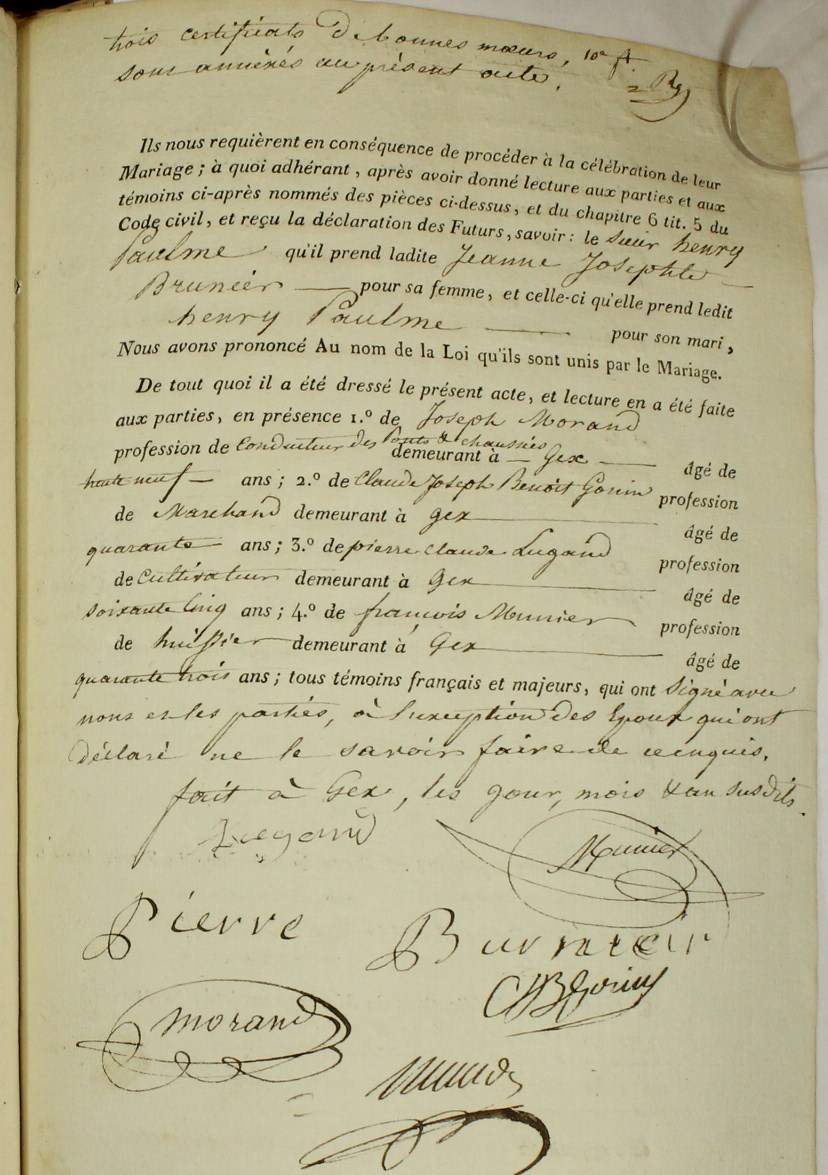 trois certificats de bonnes mœurs,
sont annéxés au présent acte.
Ils nous requièrent en conséquence de procéder à la célébration de leur
Mariage ; à quoi adhérant, après avoir donné lecture aux parties et aux
témoins ci-après nommés des pièces ci-dessus, et du chapitre 6 tit. 5 du
Code civil, et reçu la déclaration des Futurs, savoir : le Sieur henry
Paulme qu'il prend ladite Jeanne Josephte
Brunier pour sa femme, et celle-ci qu'elle prend ledit
henry Paulme pour son mari,
Nous avons prononcé Au nom de la Loi qu'ils sont unis par le Mariage.
De tout quoi il a été dressé le présent acte, et lecture en a été faite
aux parties, en présence 1.º de Joseph Morand
profession de Conducteur des Ponts & chaussées demeurant à Gex âgé de
trente neuf ans ; 2.º de Claude Joseph Benoit Gonin profession
de Marchand demeurant à gex âgé de
quarante ans ; 3.º de pierre Claude Lugand profession
de Cultivateur demeurant à Gex âgé de
soixante Cinq ans ; 4.º de françois Munier profession
de huissier demeurant à Gex âgé de
quarante trois ans ; tous témoins français et majeurs, qui ont Signé avec
nous et les parties, à l'exception des Epoux qui ont
déclaré ne le savoir faire de ce enquis.
fait à Gex, les jour, mois & an susdits.
Munier
Pierre Burnier
morand